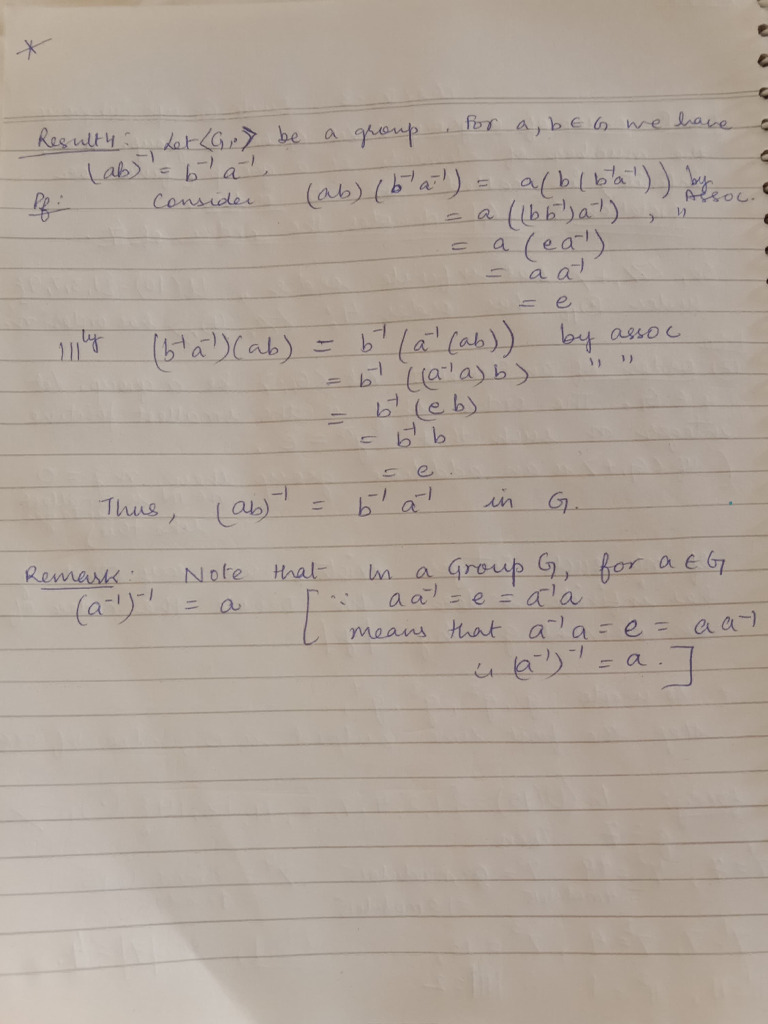 *
Result 4: Let <G, .> be a group. For a, b ∈ G we have
(ab)⁻¹ = b⁻¹ a⁻¹.
Pf: Consider (ab)(b⁻¹a⁻¹) = a(b(b⁻¹a⁻¹)) by Assoc.
= a((bb⁻¹)a⁻¹) , "
= a(ea⁻¹)
= a a⁻¹
= e
|||ly (b⁻¹a⁻¹)(ab) = b⁻¹(a⁻¹(ab)) by assoc
= b⁻¹((a⁻¹a)b) " "
= b⁻¹(eb)
= b⁻¹ b
= e.
Thus, (ab)⁻¹ = b⁻¹ a⁻¹ in G.
Remark: Note that in a Group G, for a ∈ G
(a⁻¹)⁻¹ = a [∵ aa⁻¹ = e = a⁻¹a
means that a⁻¹a = e = aa⁻¹
(a⁻¹)⁻¹ = a.]